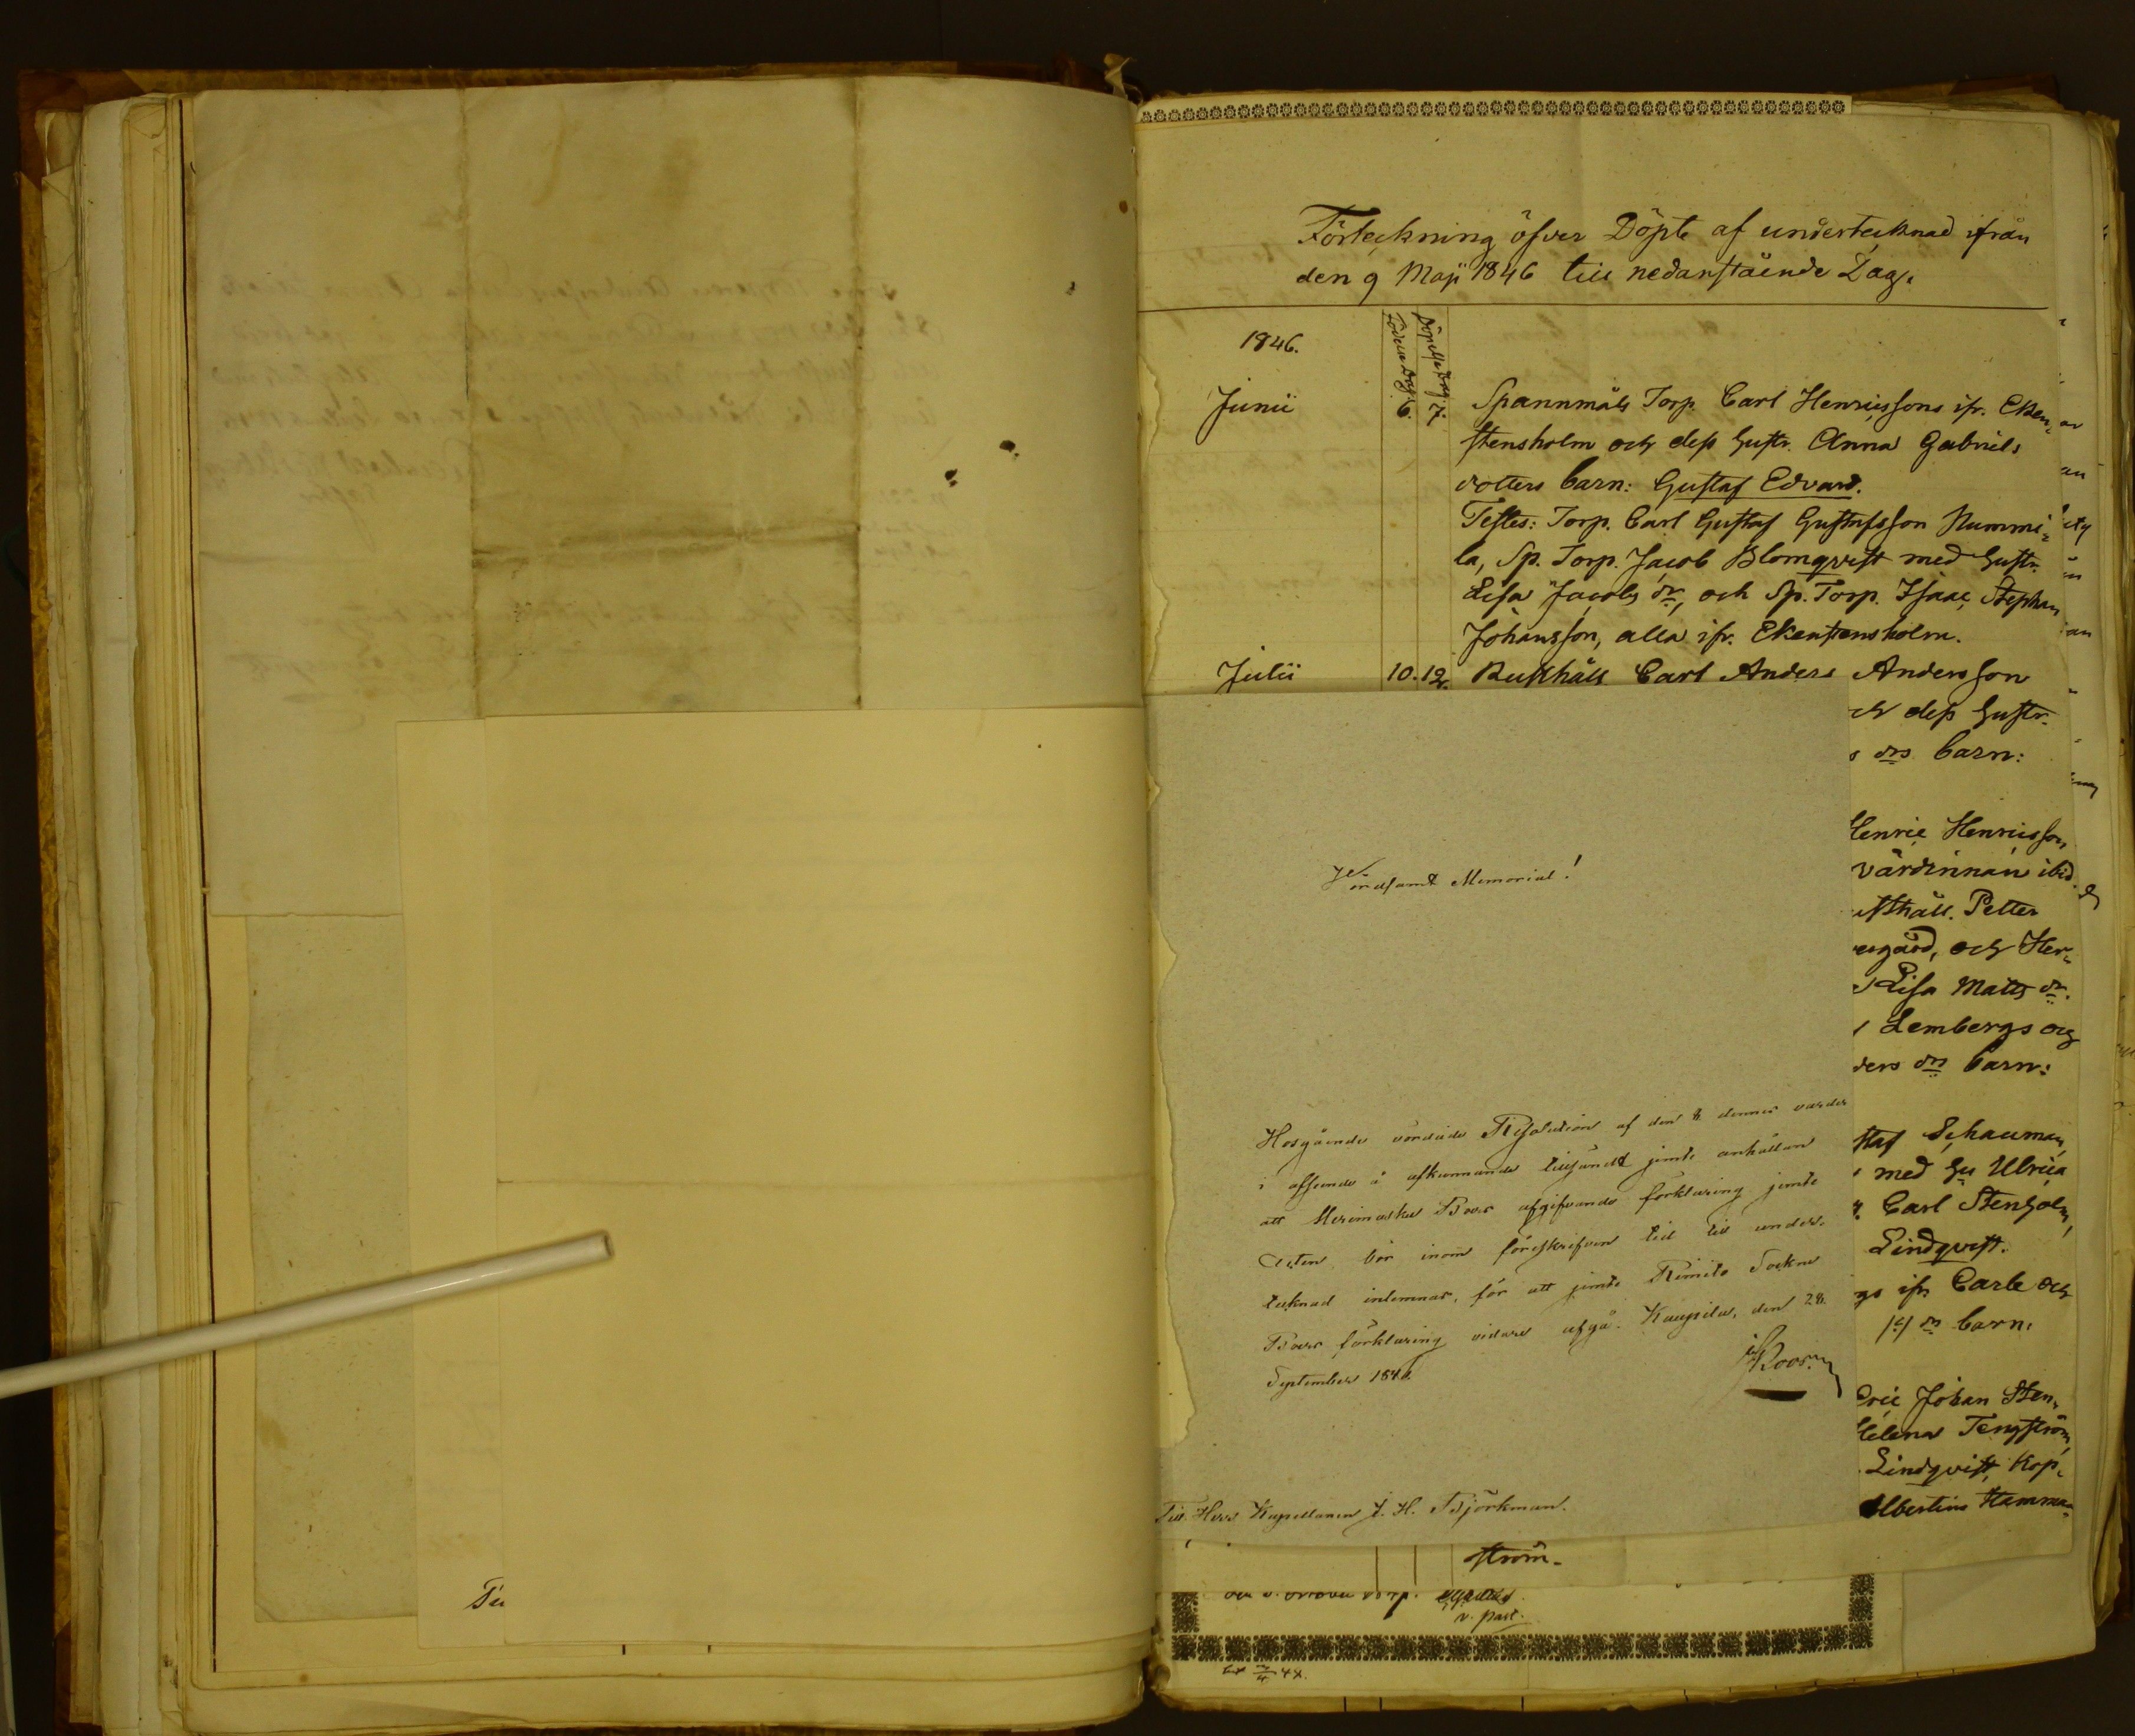 Förteckning öfver Döpte af undertecknad ifrån
den 9 Maji 1846 till nedanstående Dag.
1846.
Födelse Dag.
Döpelse Dag
Junii 6. 7. Spannmåls Torp. Carl Henricssons ifr. Eken-
stensholm och dess hustr. Anna Gabriels
dotters barn: Gustaf Edvard.
Testes: Torp. Carl Gustaf Gustafsson Nummi-
la, Sp. Torp. Jacob Blomqvist med hustr.
Lisa Jacobs dr, och Sp. Torp. Isaac Stephan
Johansson, alla ifr. Ekenstensholm.
Julii 10. 12. Rusthåll. Carl Anders Andersson
dess hustr.
drs barn:
Henric Henricsson
värdinnan ibid.
Petter
och Her-
Lisa Matts dr.
Lembergs och
drs barn:
Schauman
med hu Ulrica
Carl Stenholm,
Lindqvist.
ifr. Carle och
barn:
Eric Johan Sten-
Helena Tengström,
Lindqvist, Kop-
Albertina Hamma-
ström.
Wördsamt Memorial!
Hosgående vördade Resolution af den 8 dennes varder
i afseende å afkunnande tillsändt jemte anhållan
att Merimasku Boers afgifvande förklaring jemte
Acten bör inom föreskrifven tid till under-
tecknad inlemnas, för att jemte Rimito Sockne
Boers förklaring vidare afgå. Kaupila, den 28.
September 1846.
Roos
Till Herr Kapellanen J. H. Björkman.
v. past.